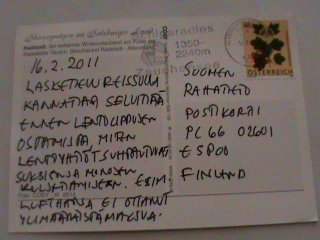 Skivergnügen im Salzburger Land
Radstadt, der bekannte Wintersportort am Fuße der
Radstädter Tauern. Skischaukel Radstadt - Altenmarkt
Skiparadies
1350-
2240m
Zauchensee
ÖSTERREICH
16.2.2011
LASKETTELUREISSULLA
KANNATTAA SELVITTÄÄ
ENNEN LENTOLIPPUJEN
OSTAMISTA, MITEN
LENTOYHTIÖT SUHTAUTUVAT
SUKSIEN JA MONOJEN
KULJETTAMISEEN. ESIM.
LUFTHANSA EI OTTANUT
YLIMÄÄRÄISTÄ MAKSUA.
SUOMEN
RAHATIETO
POSTIKORTTI
PL 66 02601
ESPOO
FINLAND